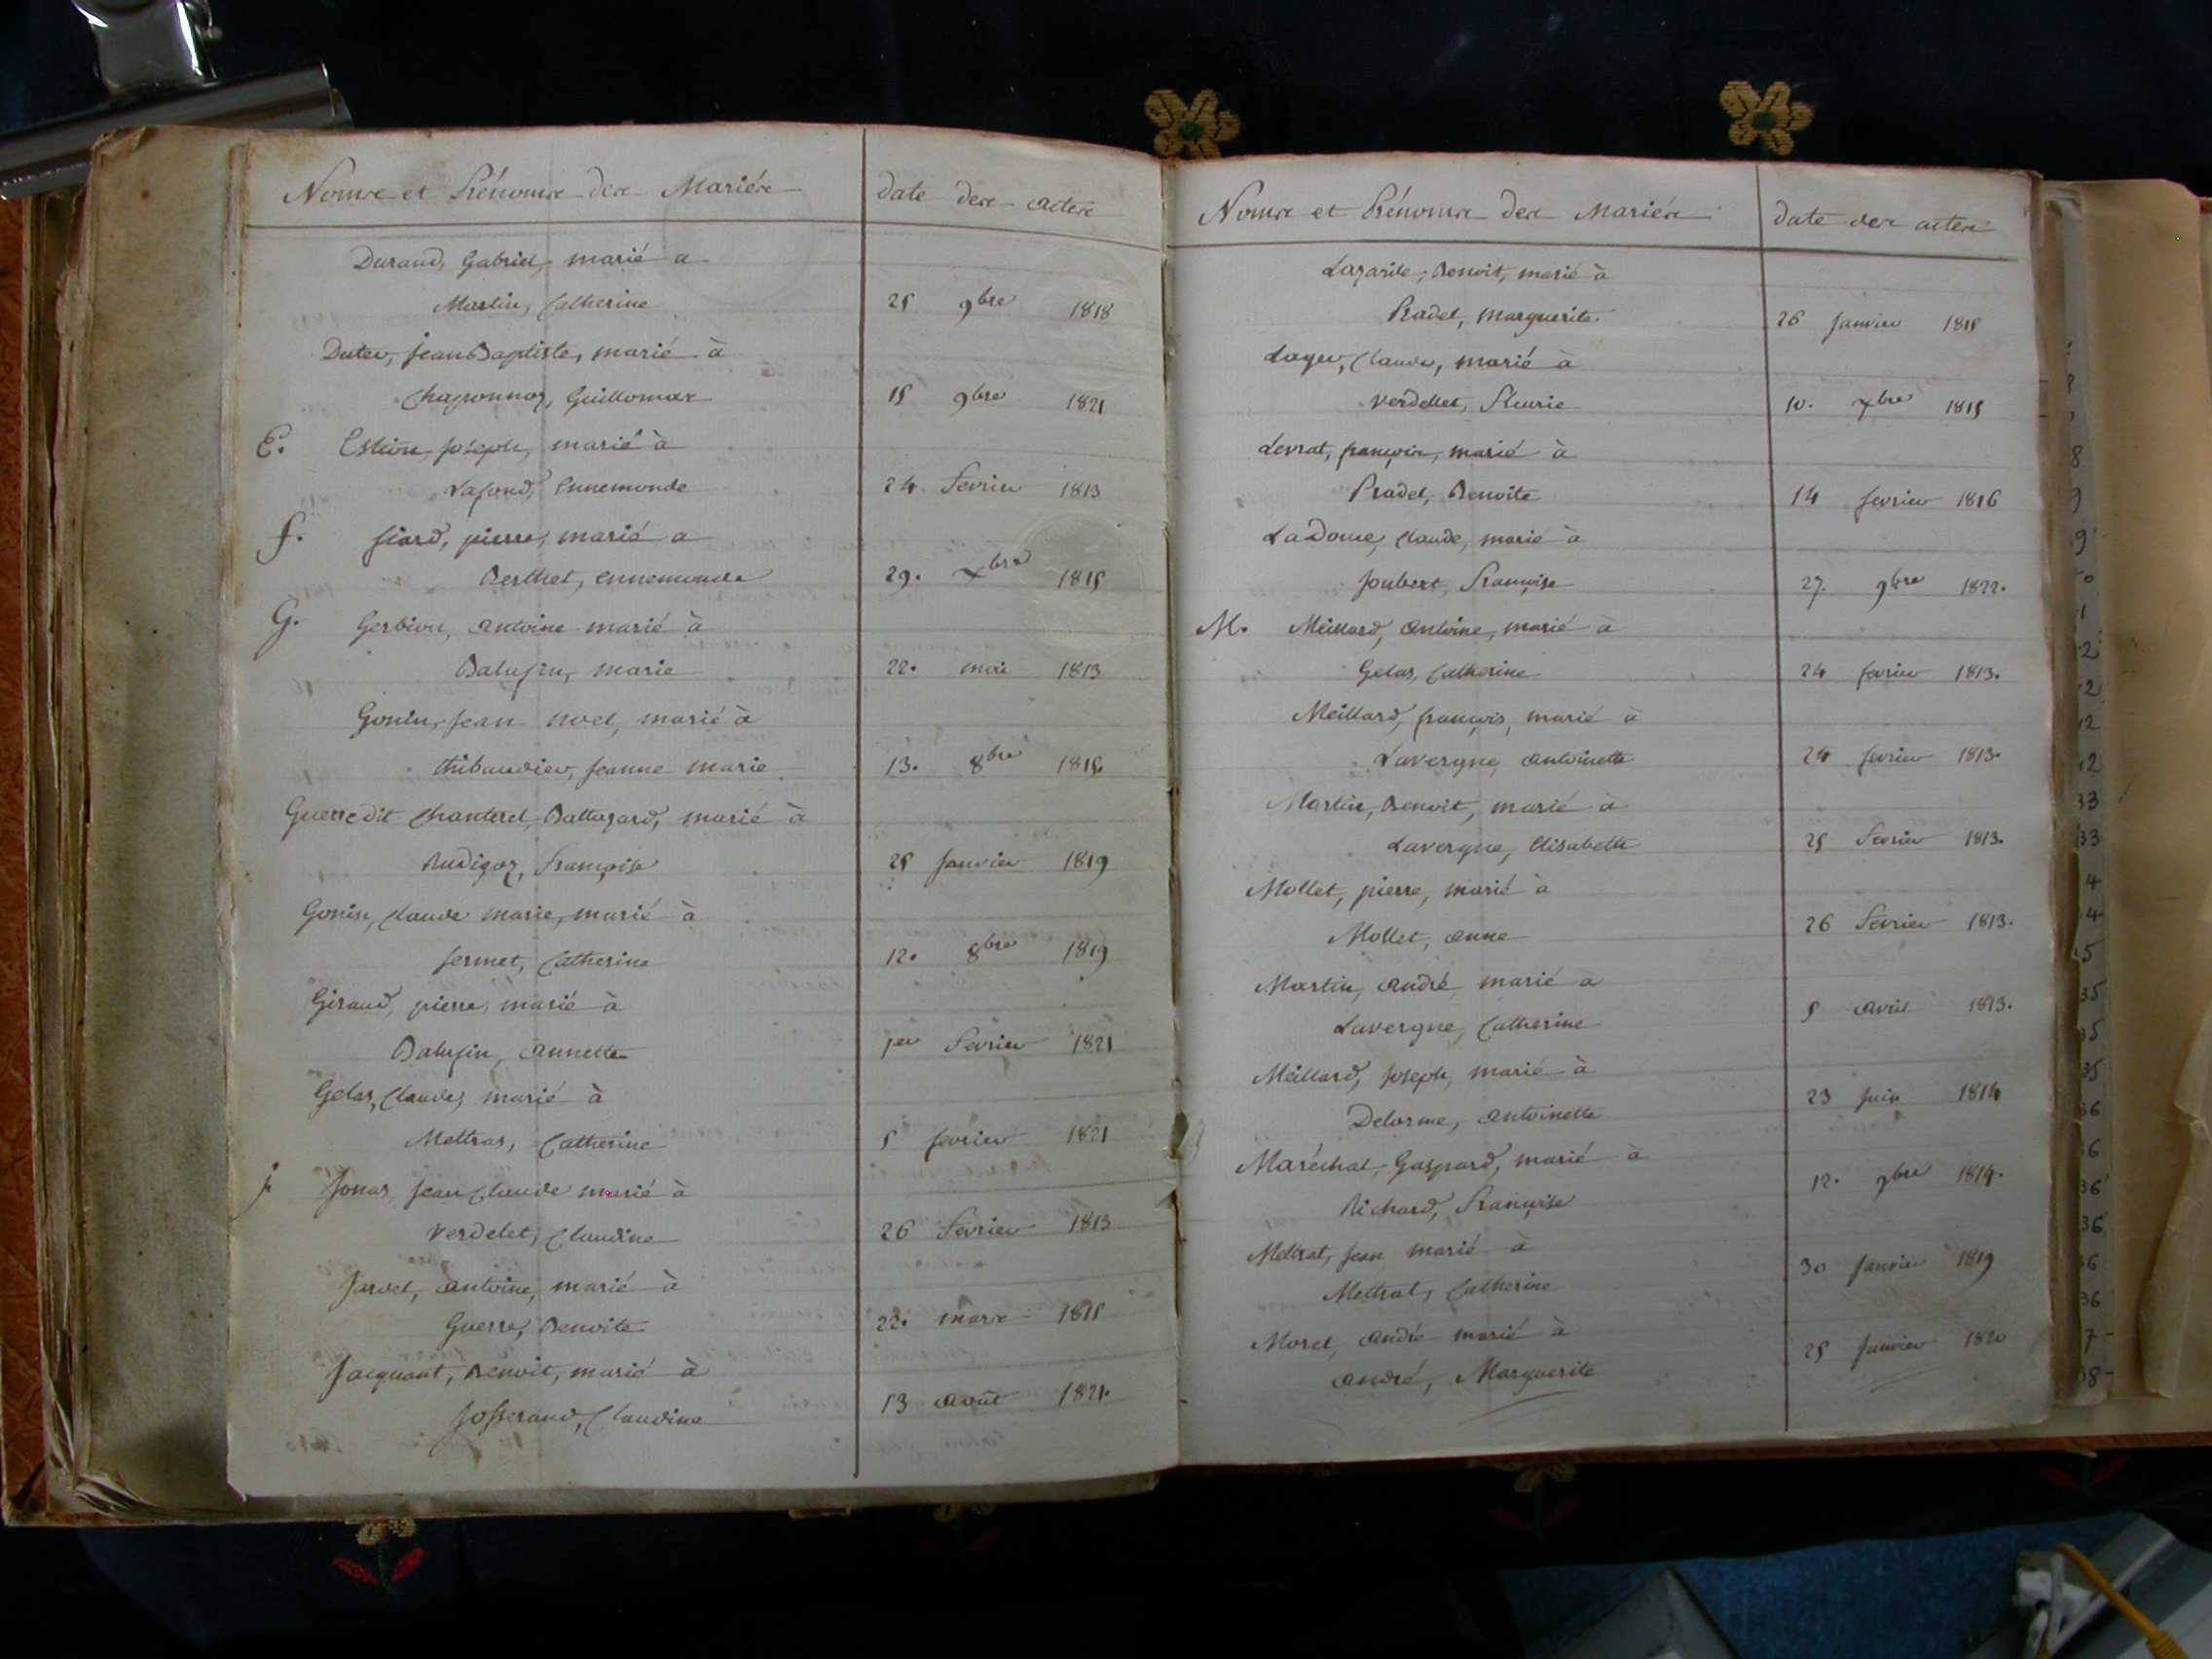 Noms et Prénoms des Mariés date des actes
Durand, Gabriel, marié a
Martin, Catherine 25 9bre 1818
Duter, jean Baptiste, marié à
Guillomar 15 9bre 1821
E. joseph, marié à
Lafond, Ennemonde 24 fevrier 1813
f. fiard, pierre, marié a
Berthet, ennemonde 29. xbre 1815
G. Gerbion, antoine marié à
Balufin, marie 22. mai 1813
Gonin, jean noel, marié à
thibaudier, jeanne marie 13. 8bre 1815
Guerre dit Chanterel, Baltazard, marié à
Rudigoz, françoise 25 janvier 1819
Gonin, Claude marie, marié à
fermet, Catherine 12. 8bre 1819
Giraud, pierre, marié à
Balufin, annette 1er fevrier 1821
Gelas, Claude, marié à
Mettras, Catherine 5 fevrier 1821
j. Jonas jean Claude marié à
Verdelet, Claudine 26 fevrier 1813
Jarvet, antoine, marié à
Guerre, Benoite 22. mars 1815
Jacquant, Benoit, marié à
Josserand, Claudine 13 août 1821.
Noms et Prénoms des Mariés date des actes
Lazarile, Benoit, marié à
Pradel, marguerite 26 janvier 1815
Layer, Claude, marié à
Verdellet, fleurie 10. xbre 1815
Levrat, françois, marié à
Pradel, Benoite 14 fevrier 1816
Ladoue, Claude, marié à
Joubert, françoise 27. 9bre 1822.
M. Meillard, antoine, marié à
Gelas, Catherine 24 fevrier 1813.
Meillard, françois, marié à
Lavergne, antoinette 24 fevrier 1813.
Martin, Benoit, marié à
Lavergne, Elisabeth 25 fevrier 1813.
Mollet, pierre, marié à
Mollet, anne 26 fevrier 1813.
Martin, andré marié a
Lavergne, Catherine 5 avril 1813.
Meillard, joseph, marié à
Delorme, antoinette 23 juin 1814
Maréchal, Gaspard, marié à
Richard, françoise 12. 9bre 1814.
Mettrat, jean marié à
Mettrat, Catherine 30 janvier 1819
Morel, andré marié à
andré, Marguerite 25 janvier 1820